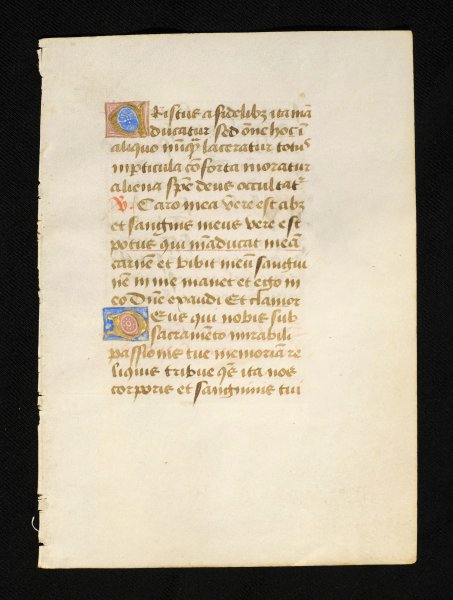 Cristus a fidelibꝫ ita mā
ducatur sed oñe hoc ī
aliquo nūq̄ laceratur totus
in pticula cōforta moratur
aliena spē deus occultatʳ
V. Caro mea vere est cibꝫ
et sanguis meus vere est
potus qui māducat meā
carnē et bibit meū sangui
nē in me manet et ego in
eo Dñe exaudi Et clamor
Deus qui nobis sub
sacramēto mirabili
passionis tue memoriā re
liquis tribue q̄s ita nos
corporis et sanguinis tui